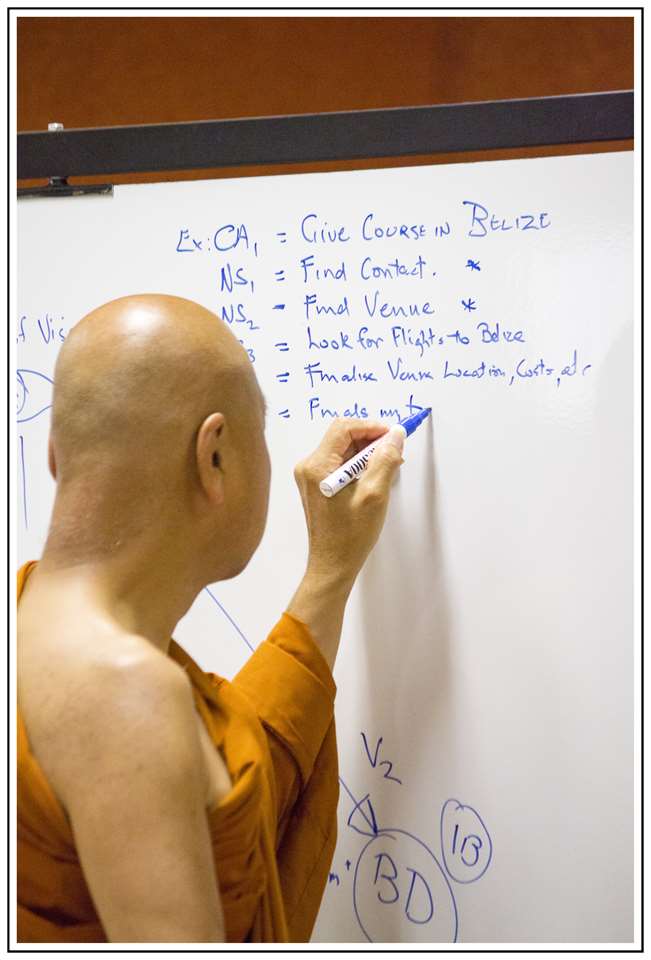 Ex: CA1 = GIVE COURSE IN BELIZE
NS1 = Find Contact. *
NS2 - Find Venue *
3 = Look for Flights to Belize
= Finalise Venue Location, Costs, etc
= Finals my t
f Vis
V2
1B
BD